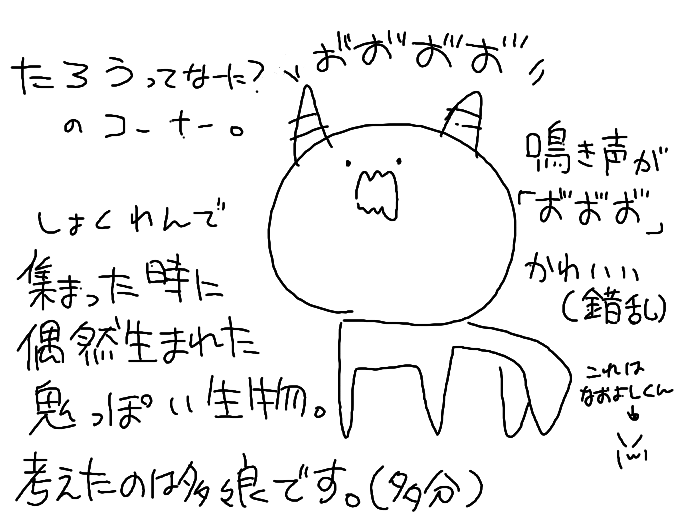 たろうってなーに?
のコーナー。
お゛お゛お゛お゛
しょくれんで
集まった時に
偶然生まれた
鬼っぽい生物。
考えたのは多々良です。(多分)
鳴き声が
「お゛お゛お゛」
かわいい
(錯乱)
これは
なおよしくん